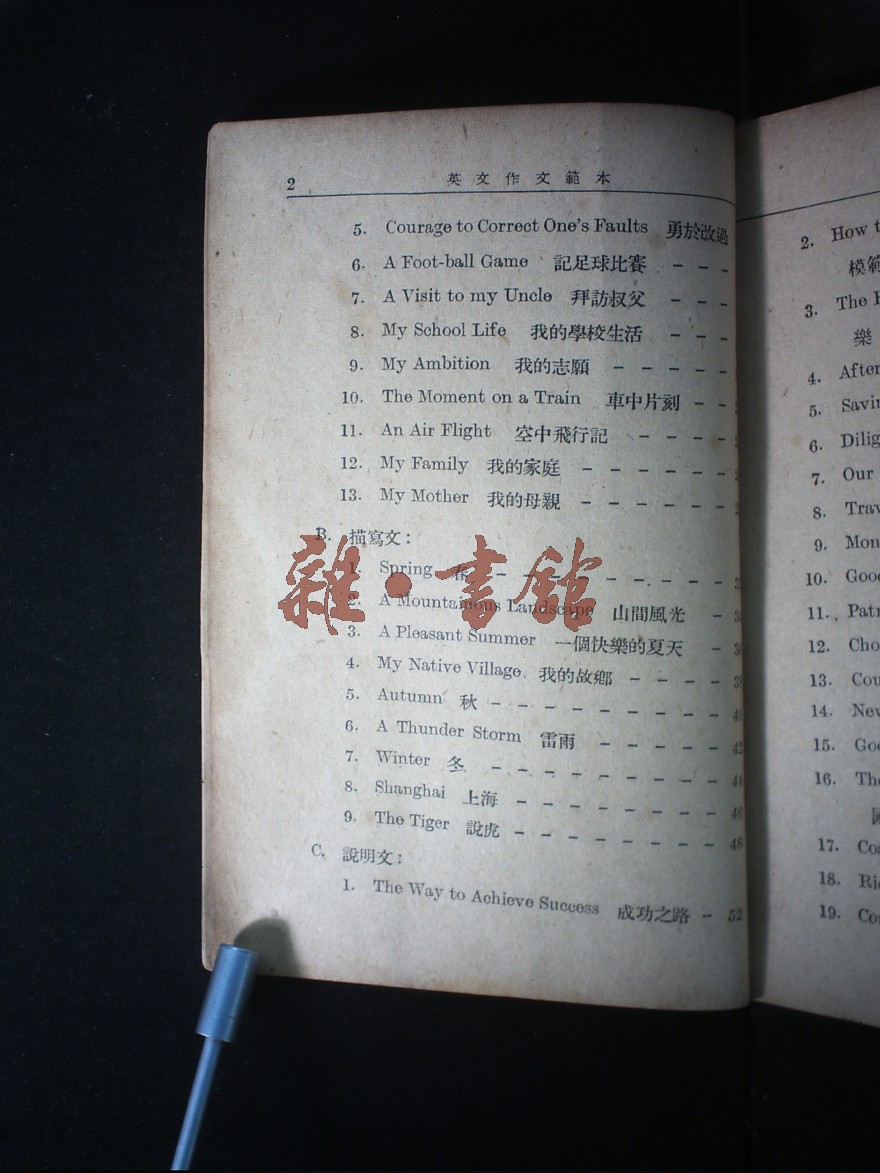 2 英文作文範本
5. Courage to Correct One's Faults 勇於改過
6. A Foot-ball Game 記足球比賽 - - -
7. A Visit to my Uncle 拜訪叔父 - - -
8. My School Life 我的學校生活 - - -
9. My Ambition 我的志願 - - - -
10. The Moment on a Train 車中片刻 - -
11. An Air Flight 空中飛行記 - - - -
12. My Family 我的家庭 - - - - - -
13. My Mother 我的母親 - - - - - -
B. 描寫文：
1. Spring 春 - - - - - - - - - -
2. A Mountainous Landscape 山間風光 -
3. A Pleasant Summer 一個快樂的夏天 -
4. My Native Village 我的故鄉 - - - -
5. Autumn 秋 - - - - - - - - - 40
6. A Thunder Storm 雷雨 - - - - - 42
7. Winter 冬 - - - - - - - - - 44
8. Shanghai 上海 - - - - - - - - 46
9. The Tiger 說虎 - - - - - - - - 48
C. 說明文：
1. The Way to Achieve Success 成功之路 - 52
雜·書館
2. How
模範
3. The
樂
4. After
5.
6.
7. Our
8.
9.
10.
11.
12.
13.
14.
15.
16.
17.
18.
19.